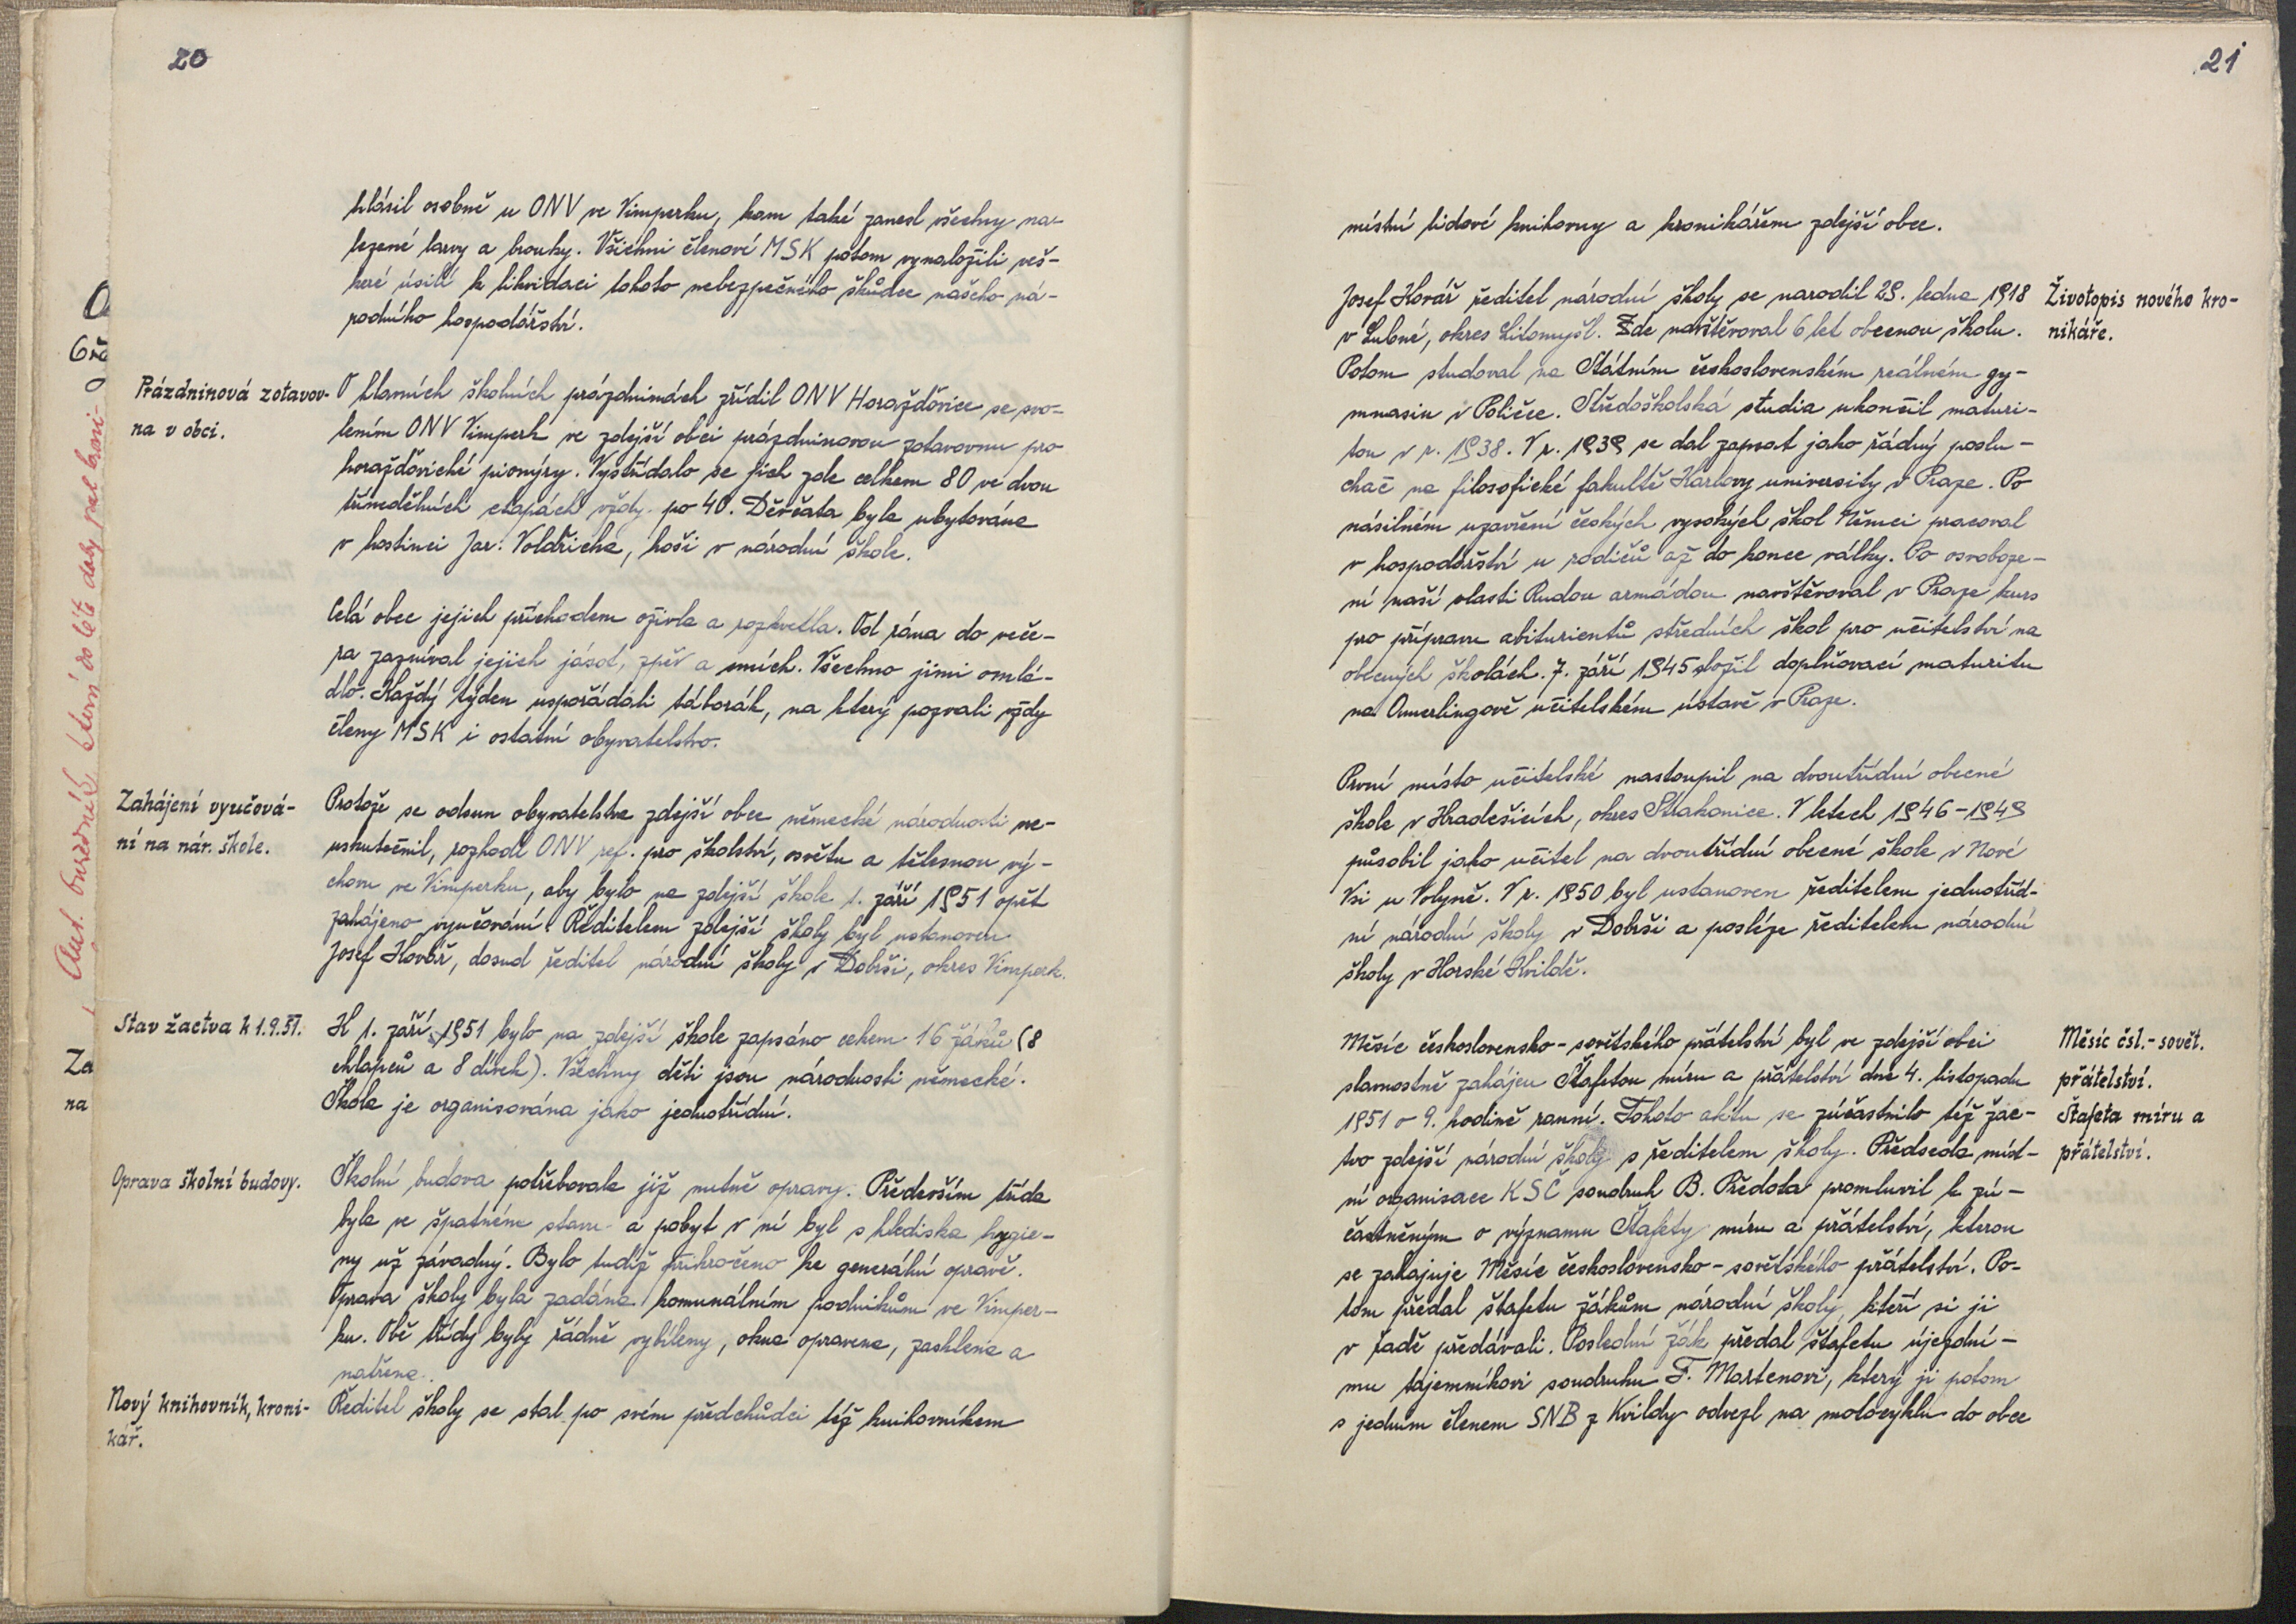 20
hlásil osobně u ONV ve Vimperku, kam také zanesl všechny na-
lezené larvy a brouky. Všichni členové MSK potom vynaložili veš-
keré úsilí k likvidaci tohoto nebezpečného škůdce našeho ná-
rodního hospodářství.
Prázdninová zotavov-
na v obci.
O hlavních školních prázdninách zřídil ONV Horažďovice se svo-
lením ONV Vimperk ve zdejší obci prázdninovou zotavovnu pro
horažďovické pionýry. Vystřídalo se jich zde celkem 80 ve dvou
třínedělních etapách vždy po 40. Děvčata byla ubytována
v hostinci Jar. Voldřicha, hoši v národní škole.
Celá obec jejich příchodem ožila a rozkvetla. Od rána do veče-
ra zazníval jejich jásot, zpěv a smích. Všechno jimi omlá-
dlo. Každý týden uspořádali táborák, na který pozvali vždy
členy MSK i ostatní obyvatelstvo.
Zahájení vyučová-
ní na nár. škole.
Protože se odsun obyvatelstva zdejší obce německé národnosti ne-
uskutečnil, rozhodl ONV ref. pro školství, osvětu a tělesnou vý-
chovu ve Vimperku, aby bylo na zdejší škole 1. září 1951 opět
zahájeno vyučování. Ředitelem zdejší školy byl ustanoven
Josef Kovář, dosud ředitel národní školy v Dobrši, okres Vimperk.
Stav žactva k 1.9.51.
K 1. září 1951 bylo na zdejší škole zapsáno cekem 16 žáků (8
chlapců a 8 dívek). Všechny děti jsou národnosti německé.
Škola je organisována jako jednotřídní.
Oprava školní budovy.
Školní budova potřebovala již nutně opravy. Především třída
byla ve špatném stavu a pobyt v ní byl s hlediska hygie-
ny už závadný. Bylo tudíž přikročeno ke generální opravě.
Oprava školy byla zadána komunálním podnikům ve Vimper-
ku. Obě třídy byly řádně vybíleny, okna opravena, zasklena a
natřena.
Nový knihovník, kroni-
kář.
Ředitel školy se stal po svém předchůdci též knihovníkem
21
místní lidové knihovny a kronikářem zdejší obce.
Josef Kovář ředitel národní školy se narodil 29. ledna 1918
v Lubné, okres Litomyšl. Zde navštěvoval 6 let obecnou školu.
Životopis nového kro-
nikáře.
Potom studoval na Státním československém reálném gy-
mnasiu v Poličce. Středoškolská studia ukončil maturi-
tou v r. 1938. V r. 1939 se dal zapsat jako řádný poslu-
chač na filosofické fakultě Karlovy university v Praze. Po
násilném uzavření českých vysokých škol Němci pracoval
v hospodářství u rodičů až do konce války. Po osvoboze-
ní naší vlasti Rudou armádou navštěvoval v Praze kurs
pro přípravu abiturientů středních škol pro učitelství na
obecných školách. 7. září 1945 složil doplňovací maturitu
na Amerlingově učitelském ústavě v Praze.
První místo učitelské nastoupil na dvoutřídní obecné
škole v Hradešicích, okres Strakonice. V letech 1946-1949
působil jako učitel na dvoutřídní obecné škole v Nové
Vsi u Volyně. V r. 1950 byl ustanoven ředitelem jednotříd-
ní národní školy v Dobrši a posléze ředitelem národní
školy v Horské Kvildě.
Měsíc československo-sovětského přátelství byl ve zdejší obci
slavnostně zahájen Štafetou míru a přátelství dne 4. listopadu
1951 o 9. hodině ranní. Tohoto aktu se zúčastnilo též žac-
tvo zdejší národní školy s ředitelem školy. Předseda míst-
Měsíc čsl.-sovět.
přátelství.
Štafeta míru a
přátelství.
ní organisace KSČ soudruh B. Předota promluvil k zú-
častněným o významu Štafety míru a přátelství, kterou
se zahajuje Měsíc československo-sovětského přátelství. Po-
tom předal štafetu žákům národní školy, kteří si ji
v řadě předávali. Poslední žák předal štafetu újezdní-
mu tajemníkovi soudruhu F. Martenovi, který ji potom
s jedním členem SNB z Kvildy odvezl na motocyklu do obce